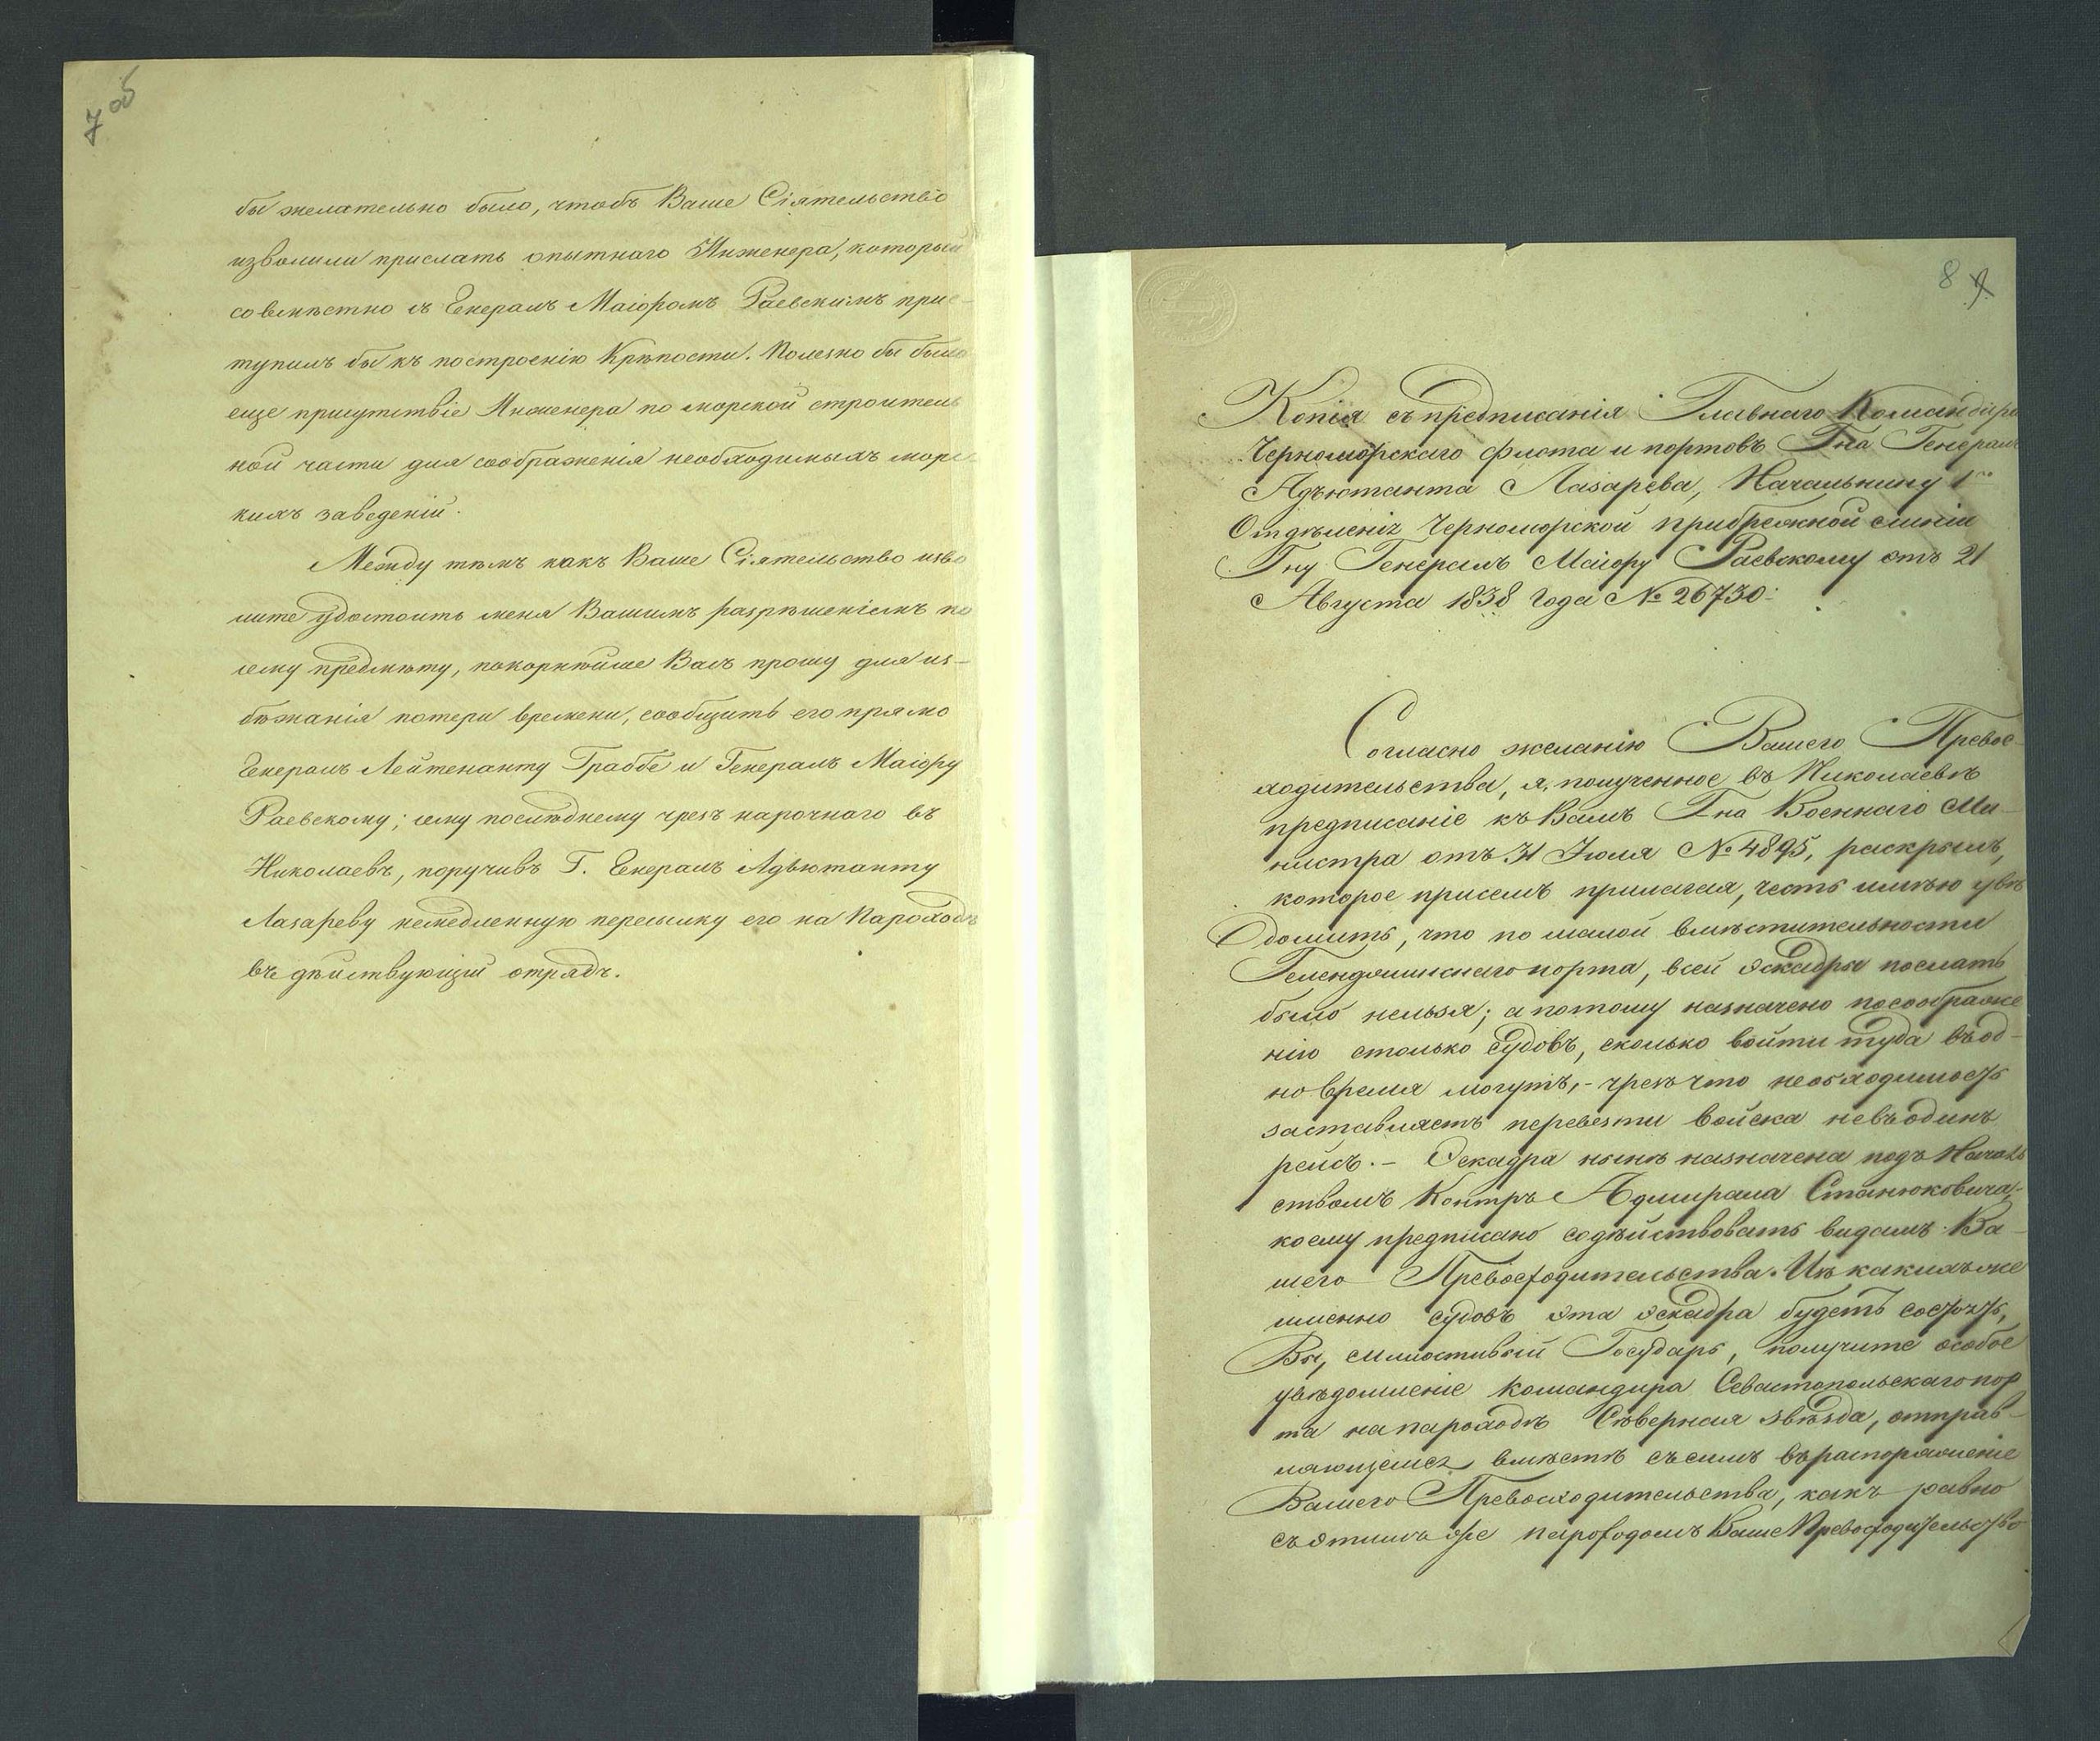 7об
бы желательно было, чтобъ Ваше Сіятельство
изволили прислать опытнаго Инженера, который
совмѣстно съ Генералъ Маіоромъ Раевскимъ прис-
тупилъ бы къ построенію Крѣпости. Полезно бы было
еще присутствіе Инженера по морской строитель
ной части для соображенія необходимыхъ морс-
кихъ заведеній.
Между тѣмъ какъ Ваше Сіятельство изво
лите удостоить меня Вашимъ разрѣшеніемъ по
сему предмѣту, покорнѣйше Васъ прошу для из-
бѣжанія потери времени, сообщить его прямо
Генералъ Лейтенанту Граббе и Генералъ Маіору
Раевскому; сему послѣднему чрезъ нарочнаго въ
Николаевъ, поручивъ Г. Генералъ Адъютанту
Лазареву немедленную пересылку его на Пароходѣ
въ дѣйствующій отрядъ.
8
Копія съ предписанія Главнаго Командира
Черноморскаго флота и портовъ Гна Генералъ
Адъютанта Лазарева, Начальнику 1го
Отдѣленія Черноморской прибрежной линіи
Гну Генералъ Маіору Раевскому отъ 21
Августа 1838 Года № 26730.
Согласно желанію Вашего Превос-
ходительства, я, полученное въ Николаевѣ
предписаніе къ Вамъ Гна Военнаго Ми-
нистра отъ 31 Іюля № 4895, раскрылъ,
которое присемъ прилагая, честь имѣю увѣ
домить, что по малой вмѣстительности
Геленджикскаго порта, всей эскадры послать
было нельзя; а потому назначено посоображе
нію столько судовъ, сколько войти туда въод-
но время могутъ, - чрезъ что необходимость
заставляетъ перевезти войска невъодинъ
рейсъ. - Эскадра нынѣ назначена подъ Началь
ствомъ Контръ Адмирала Станюковича,
коему предписано содѣйствовать видамъ Ва-
шего Превосходительства. Изъ какихъ же
именно судовъ эта эскадра будетъ состоять,
Вы, Милостивый Государь, получите особое
увѣдомленіе Командира Севастопольскаго пор
та на пароходѣ Сѣверная звѣзда, отправ-
ляющемся вмѣстѣ съ симъ въ распоряженіе
Вашего Превосходительства, какъ равно
съ этимъ же пароходомъ Ваше Превосходительство